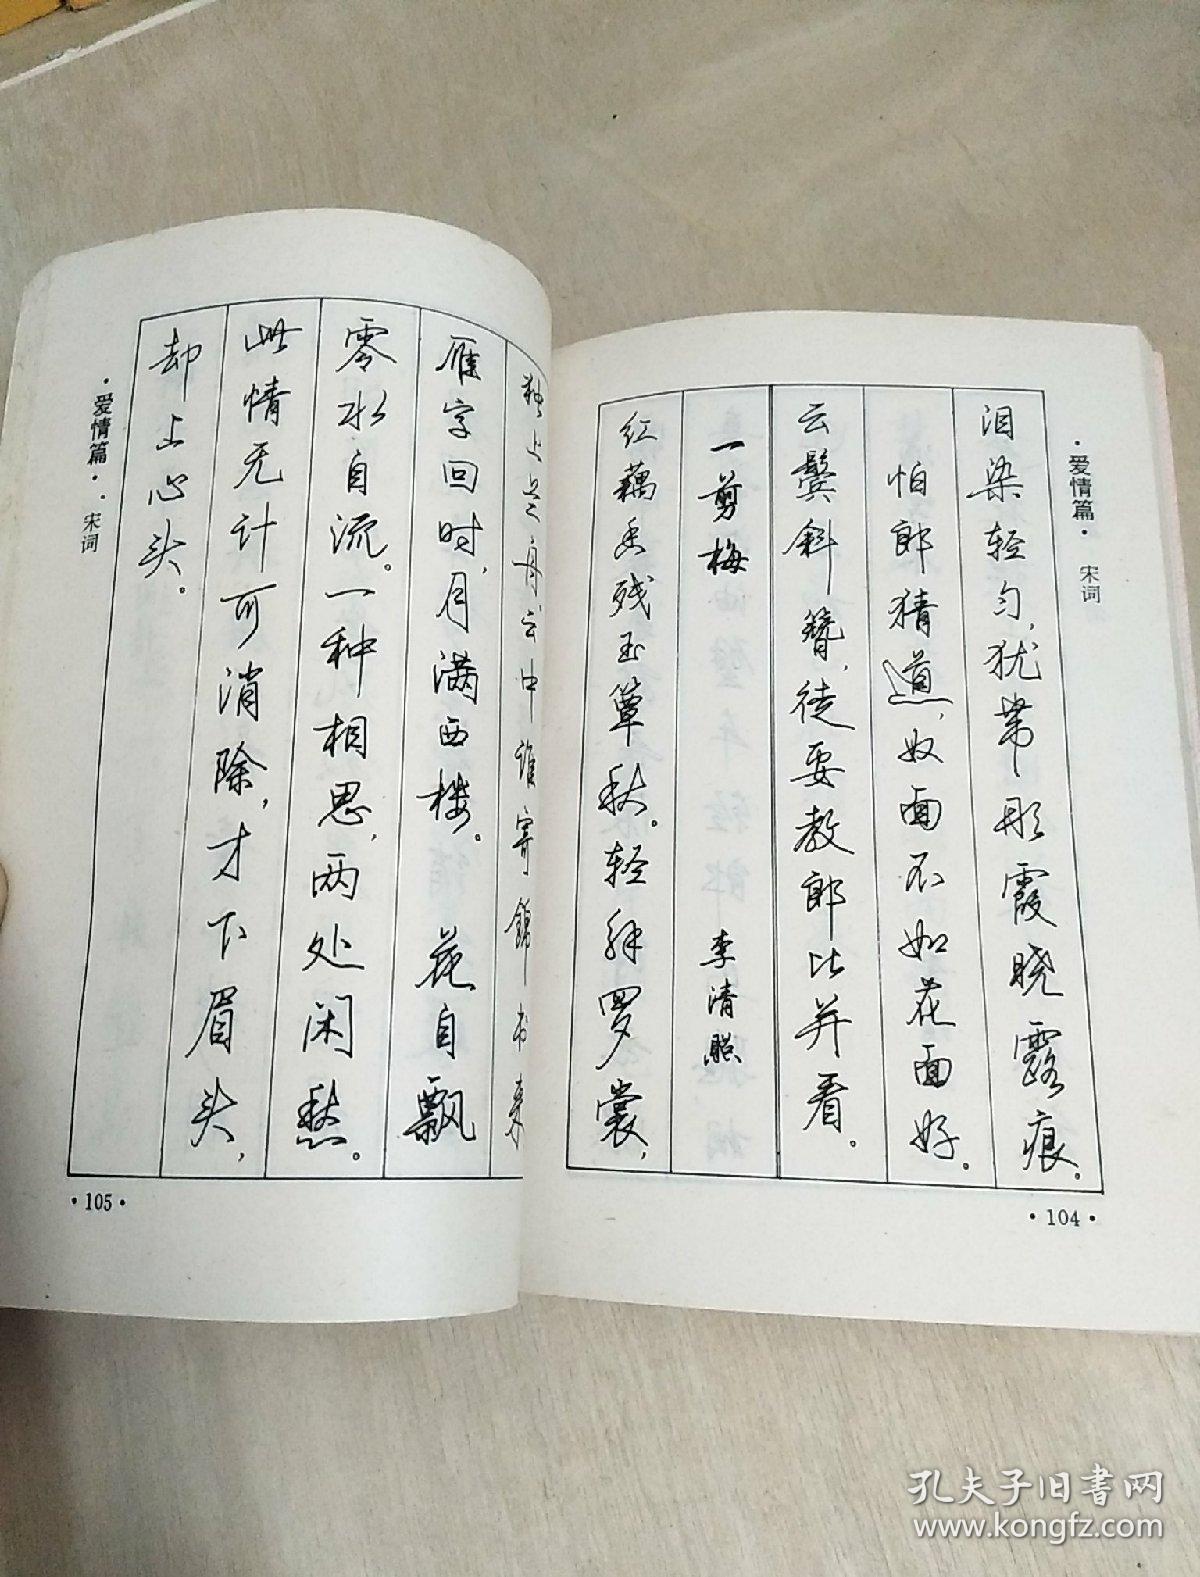 ·爱情篇· 宋词
泪染轻匀,犹带彤霞晓露痕。
怕郎猜道,奴面不如花面好。
云鬓斜簪,徒要教郎比并看。
一剪梅 李清照
红藕香残玉簟秋。轻解罗裳,
·104·
独上兰舟。云中谁寄锦书来
雁字回时,月满西楼。 花自飘
零水自流。一种相思,两处闲愁。
此情无计可消除,才下眉头,
却上心头。
·爱情篇· · 宋词
·105·
孔夫子旧书网
www.kongfz.com